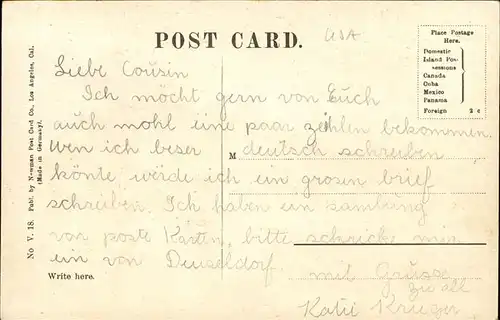 POST CARD.
USA
Place Postage
Here.
Domestic
Island Pos-
sessions
Canada
Cuba
Mexico
Panama
Foreign 2 c
No V. 18. Publ. by Newman Post Card Co., Los Angeles, Cal.
(Made in Germany).
Liebe Cousin
Ich möcht gern von Euch
auch mohl eine paar zeihlen bekommen.
Wen ich beser deutsch schreiben
M
könte werde ich ein grosen brief
schreiben. Ich haben ein samlung
von poste Karten, bitte schrick mir
ein von Deuseldorf. mit Grüsse
zu all
Katie Krueger
Write here.